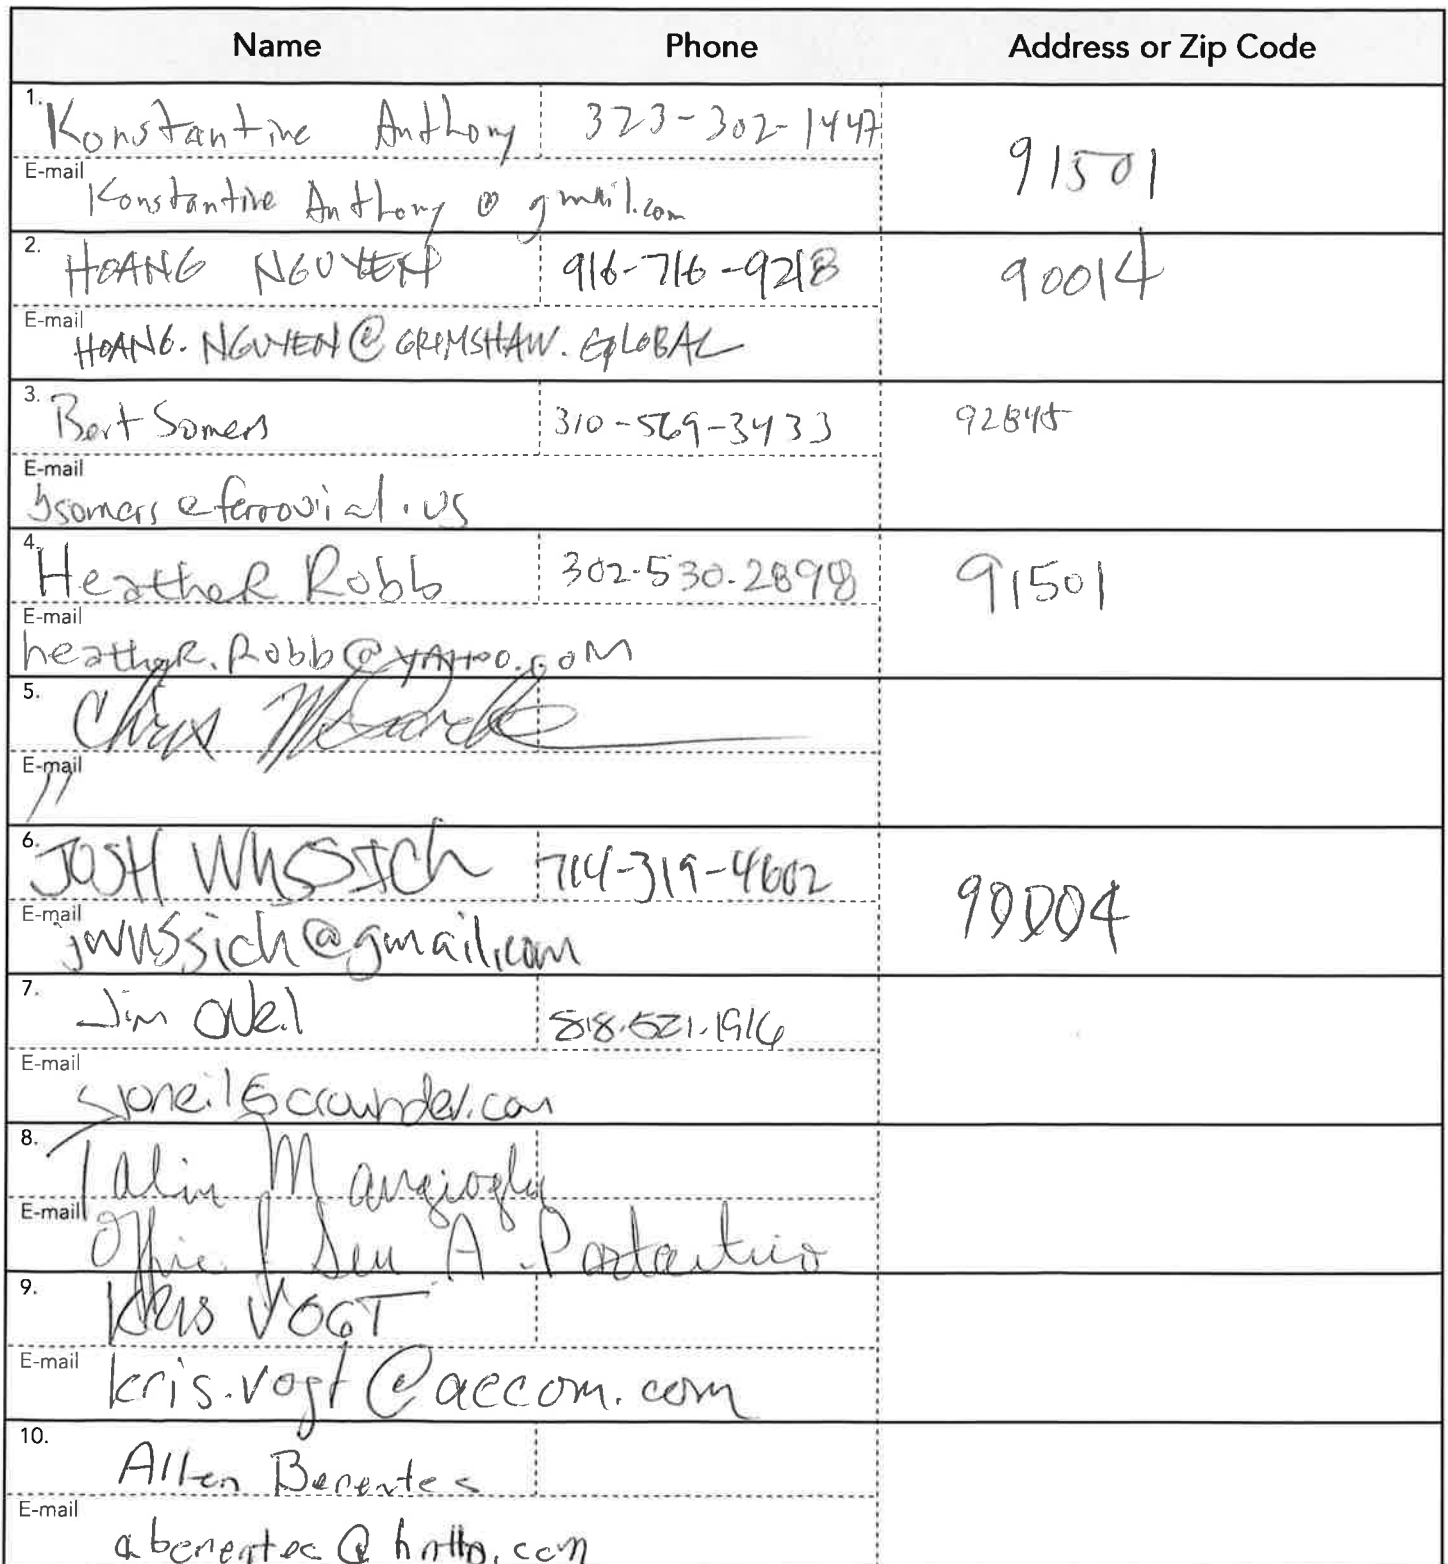 Name Phone Address or Zip Code
1. Konstantine Anthony 323-302-1447
91501
E-mail KonstantineAnthony@gmail.com
2. HOANG NGUYEN 916-716-9218 90014
E-mail HOANG.NGUYEN@GRIMSHAW.GLOBAL
3. Bert Somers 310-569-3433 92845
E-mail
bsomers@ferrovial.us
4. Heather Robb 302.530.2898 91501
E-mail
heather.Robb@YAHOO.COM
5. Chris
E-mail
"
6. JOSH WUSSICH 714-319-4602
90004
E-mail jwussich@gmail.com
7. Jim ONeil 818.521.1916
E-mail
8. Talin
E-mail Office of Sen A. Portantino
9. KRIS VOGT
E-mail kris.vogt@aecom.com
10. Allen Berentes
E-mail